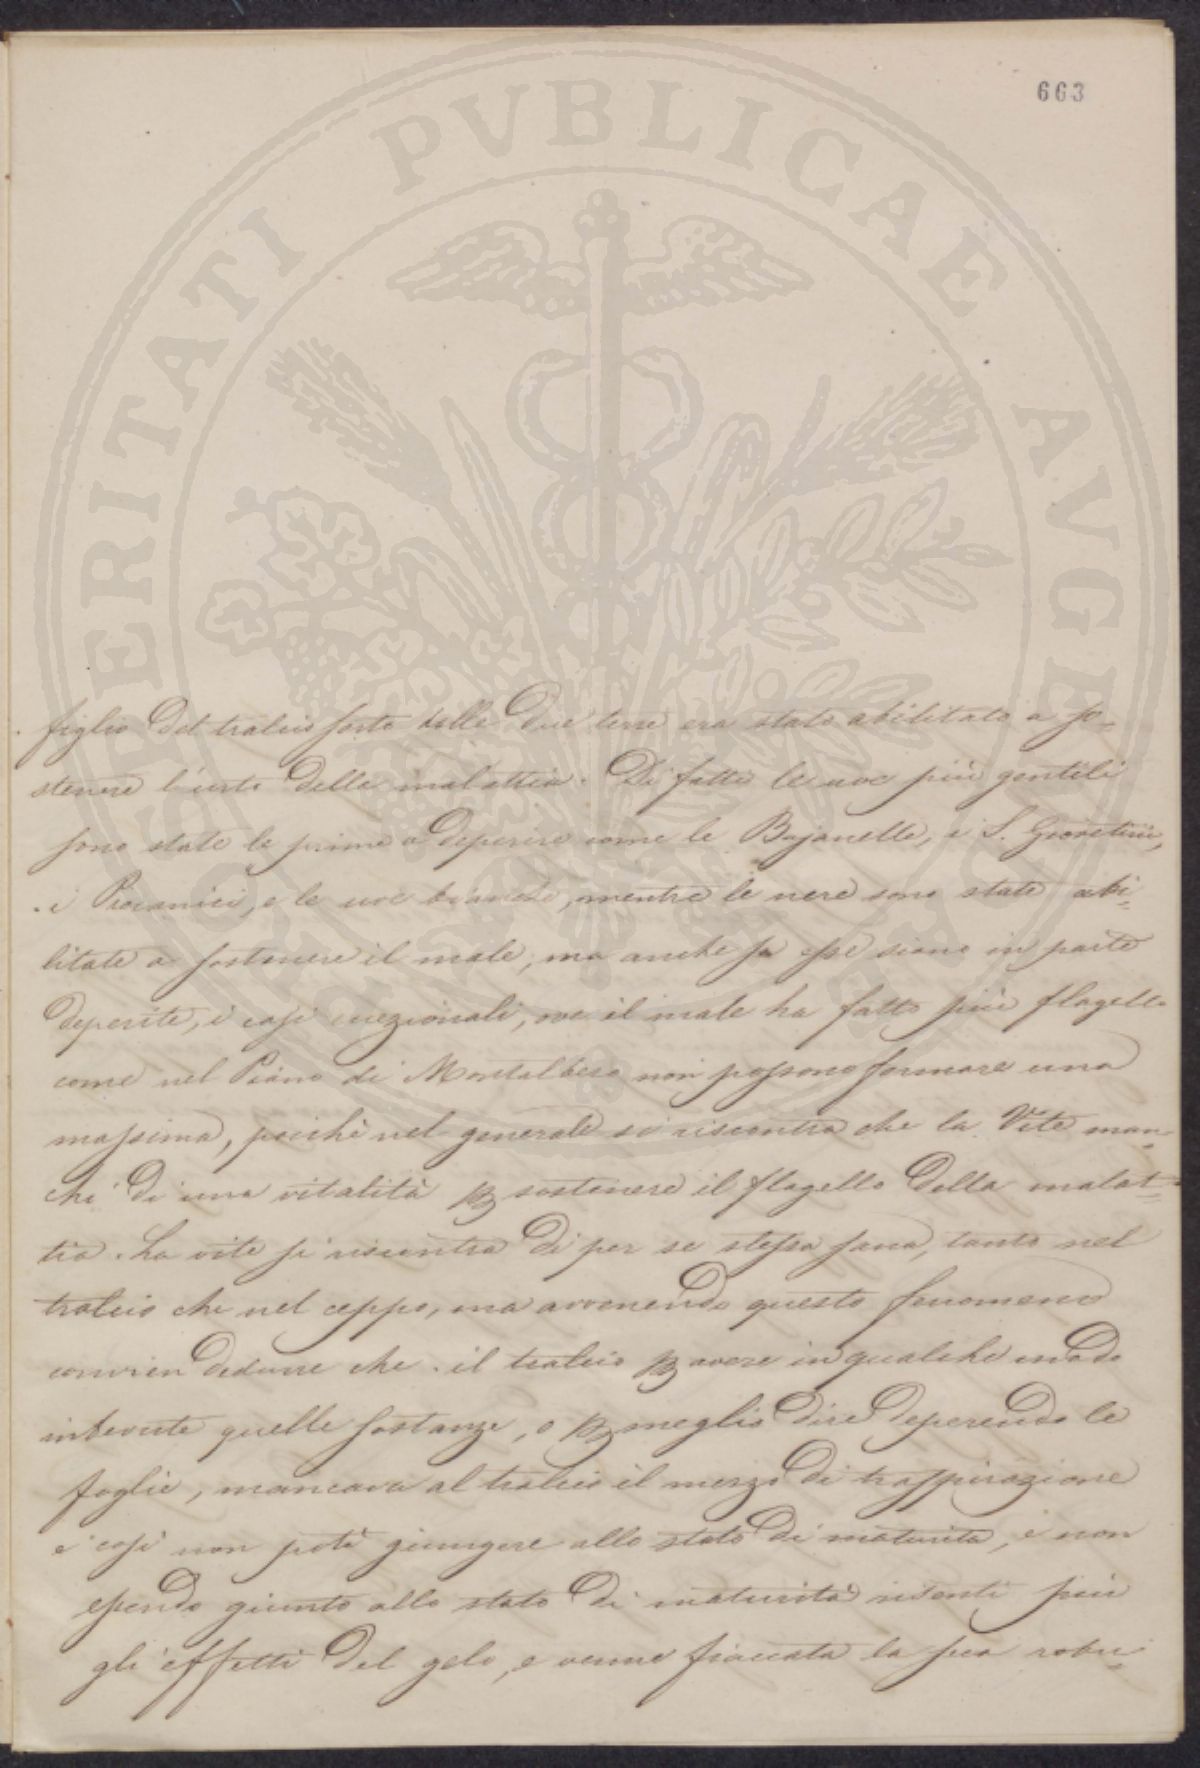 663
PROSPERITATI PUBLICAE AVGENDAE
figlio del tralcio sorto dalle due terre era stato abilitato a so=
stenere l'urto della malattia. Di fatti le uve più gentili
sono state le prime a deperire come le Bujanelle, i S. Giovetini,
i Procanici, e le uve bianche, mentre le nere sono state abi=
litate a sostenere il male; ma anche fra esse siano in parte
deperite, i casi eccezionali, ove il male ha fatto più flagello
come nel Piano di Montalbero non possono formare una
massima, poichè nel generale si riscontra che la Vite man=
chi di una vitalità p sostenere il flagello della malat=
tia. La vite si riscontra di per se stessa sana, tanto nel
tralcio che nel ceppo, ma avvenendo questo fenomeno
convien dedurre che il tralcio p avere in qualche modo
imbevute quelle sostanze, o p meglio dire deperendo le
foglie, mancava al tralcio il mezzo di traspirazione
e così non potè giungere allo stato di maturità, e non
essendo giunto allo stato di maturità risentì più
gli effetti del gelo, e venne fiaccata la sua robu=